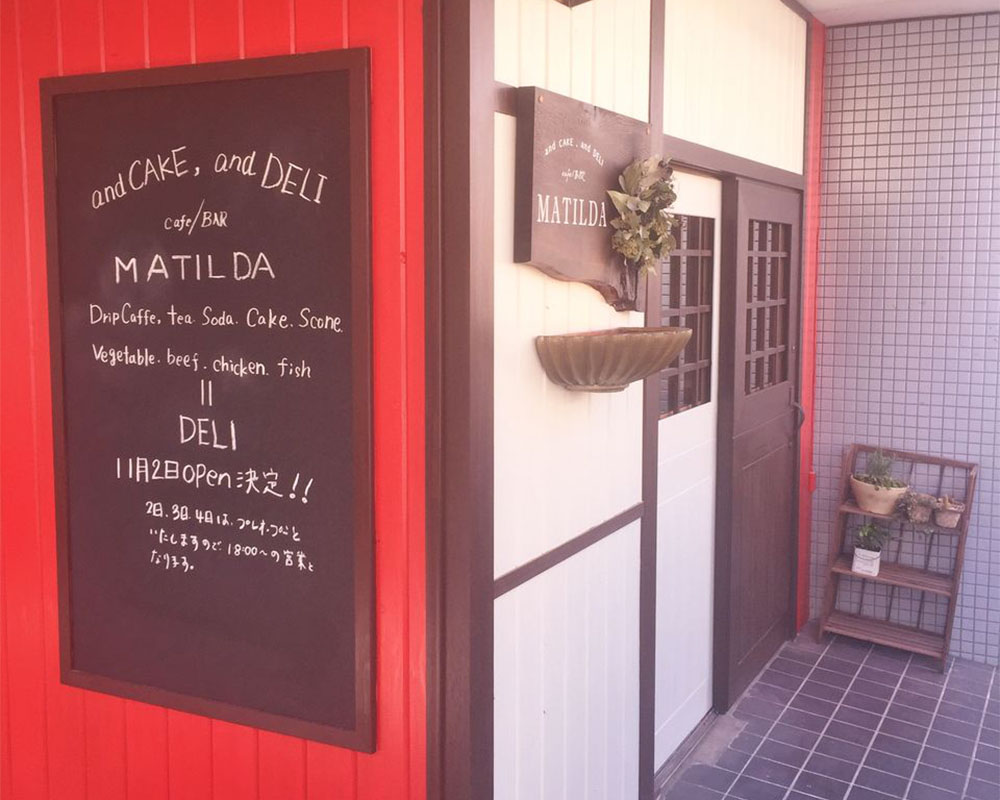 and CAKE, and DELI
cafe/BAR
MATILDA
Drip Caffe, tea. Soda. Cake. Scone.
Vegetable. beef. chicken. fish
||
DELI
11月2日open決定!!
2日.3日.4日は、プレオープンと
いたしますので、18:00〜の営業と
なります。
and CAKE, and DELI
cafe/BAR
MATILDA